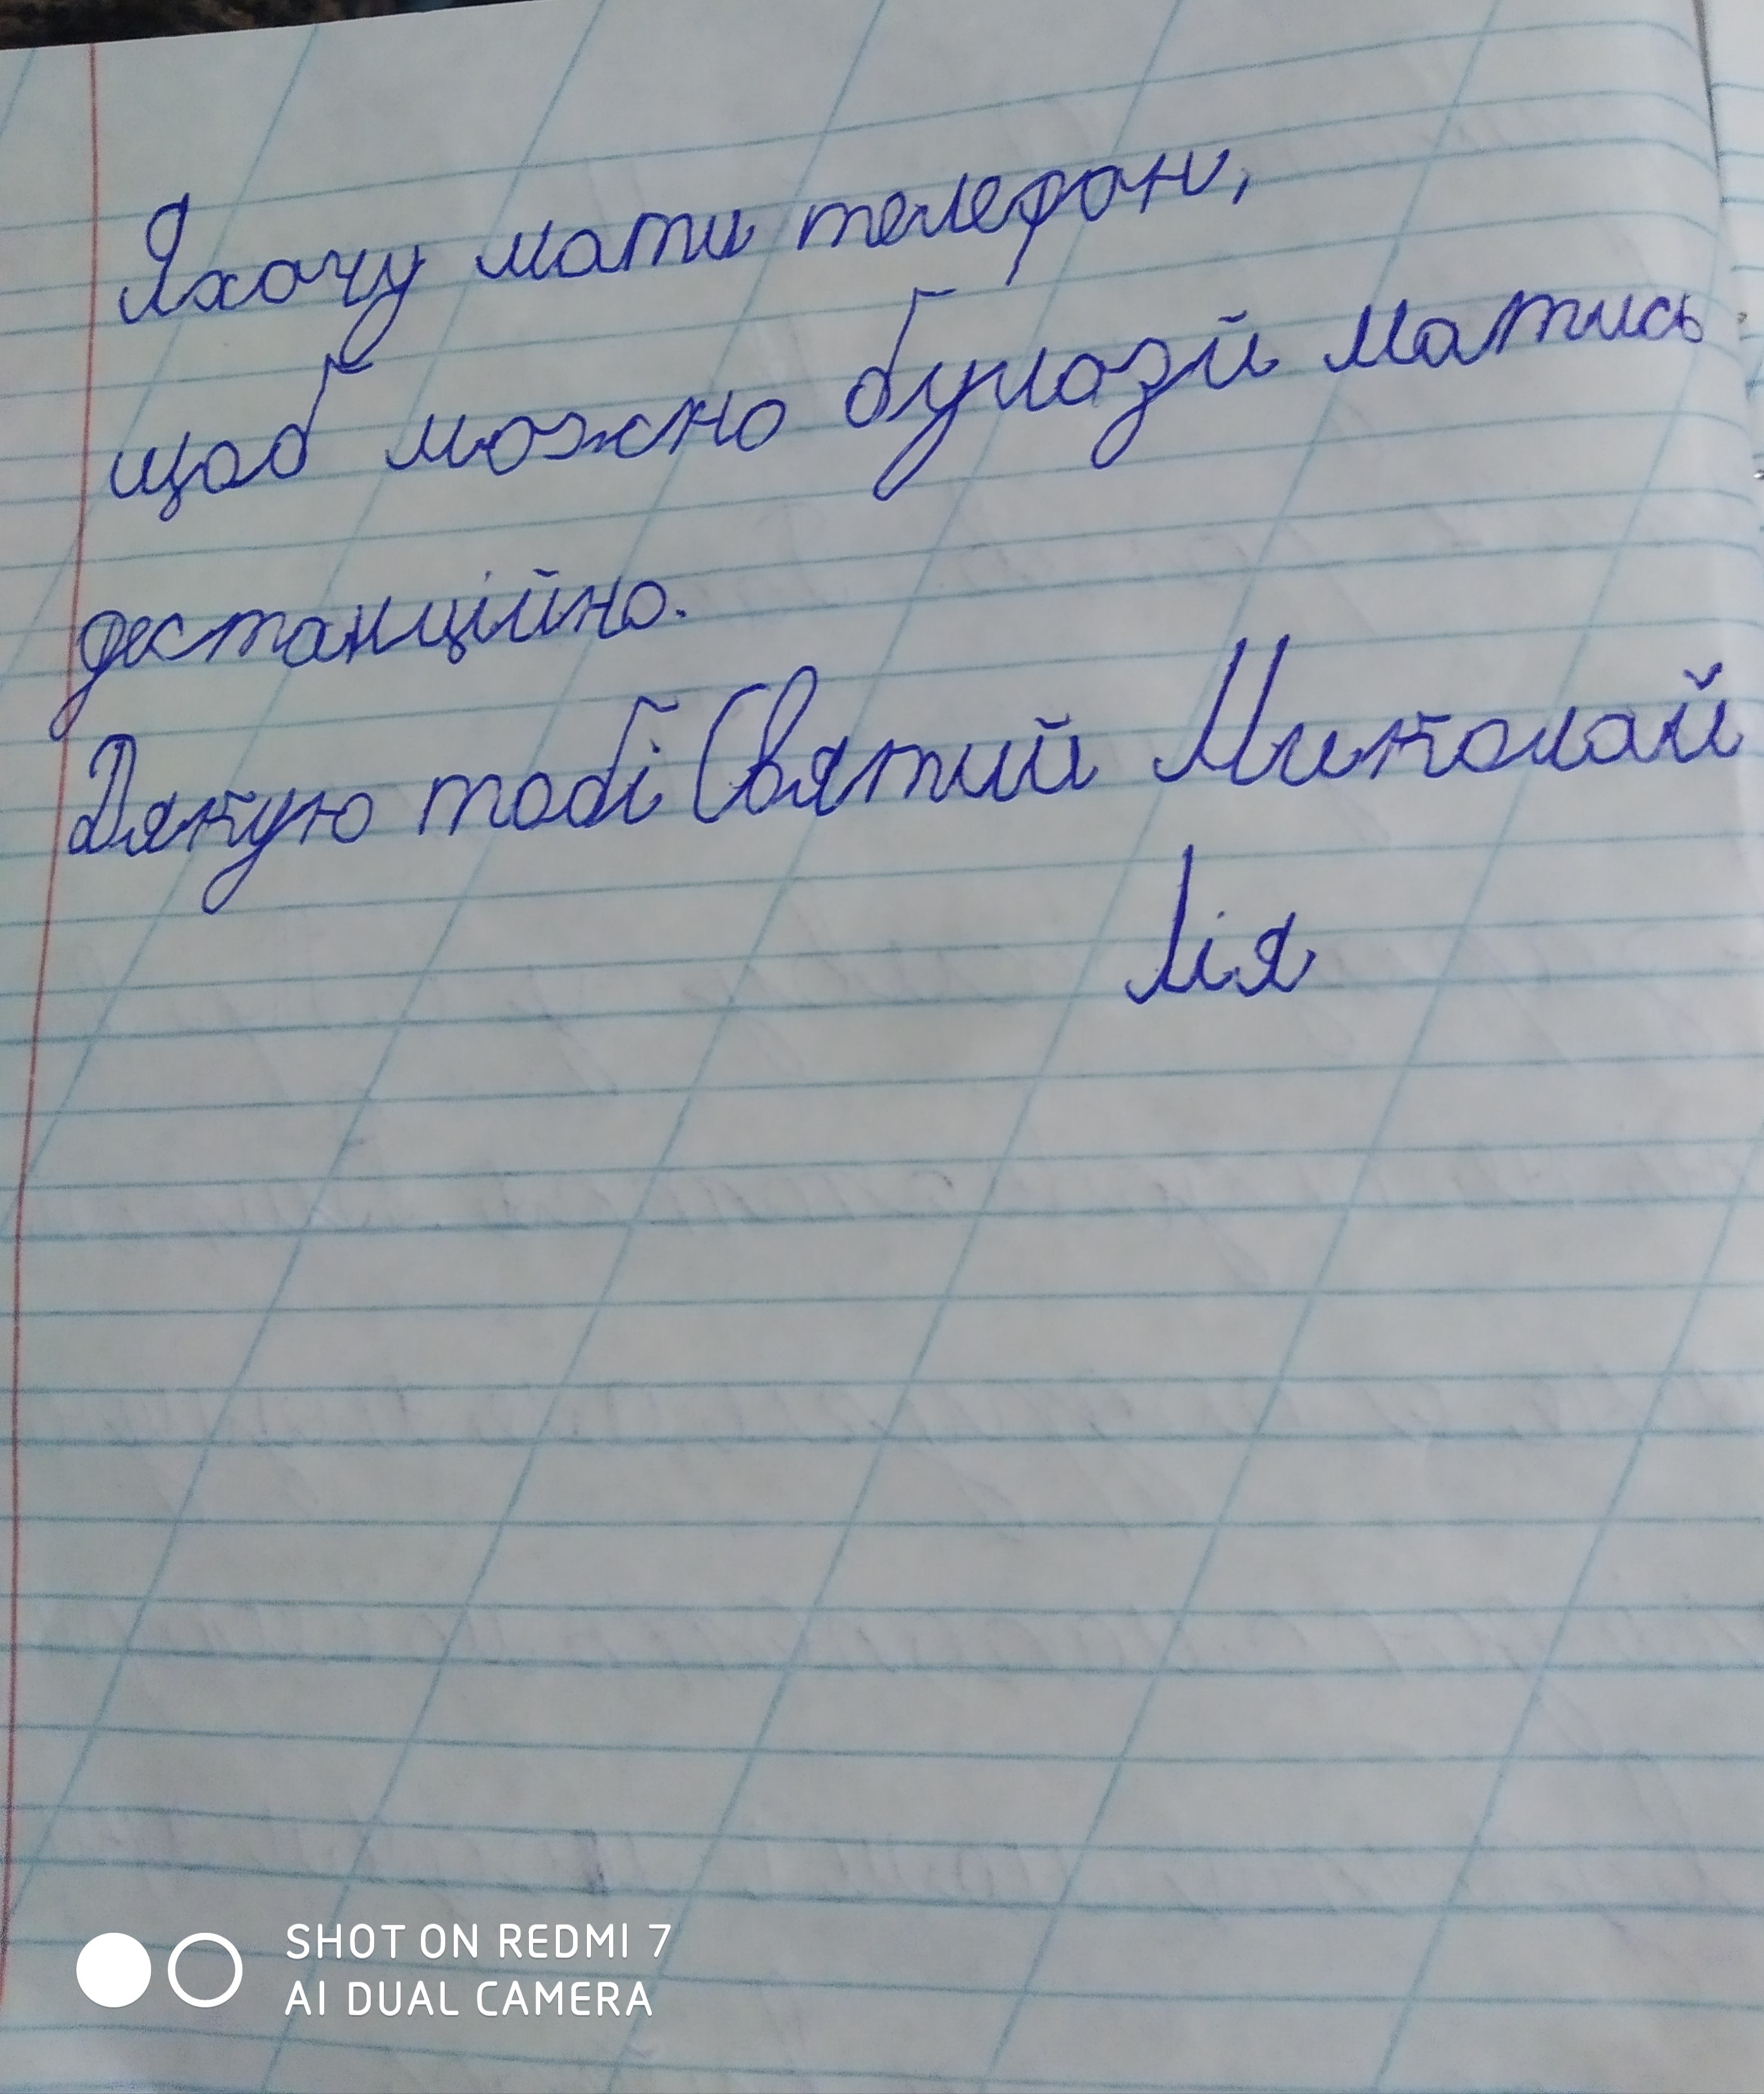 Яхочу мати телефон,
щоб можно булозй матись
дестанційно.
Дякую тобі Святий Миколай
Лія
SHOT ON REDMI 7
AI DUAL CAMERA